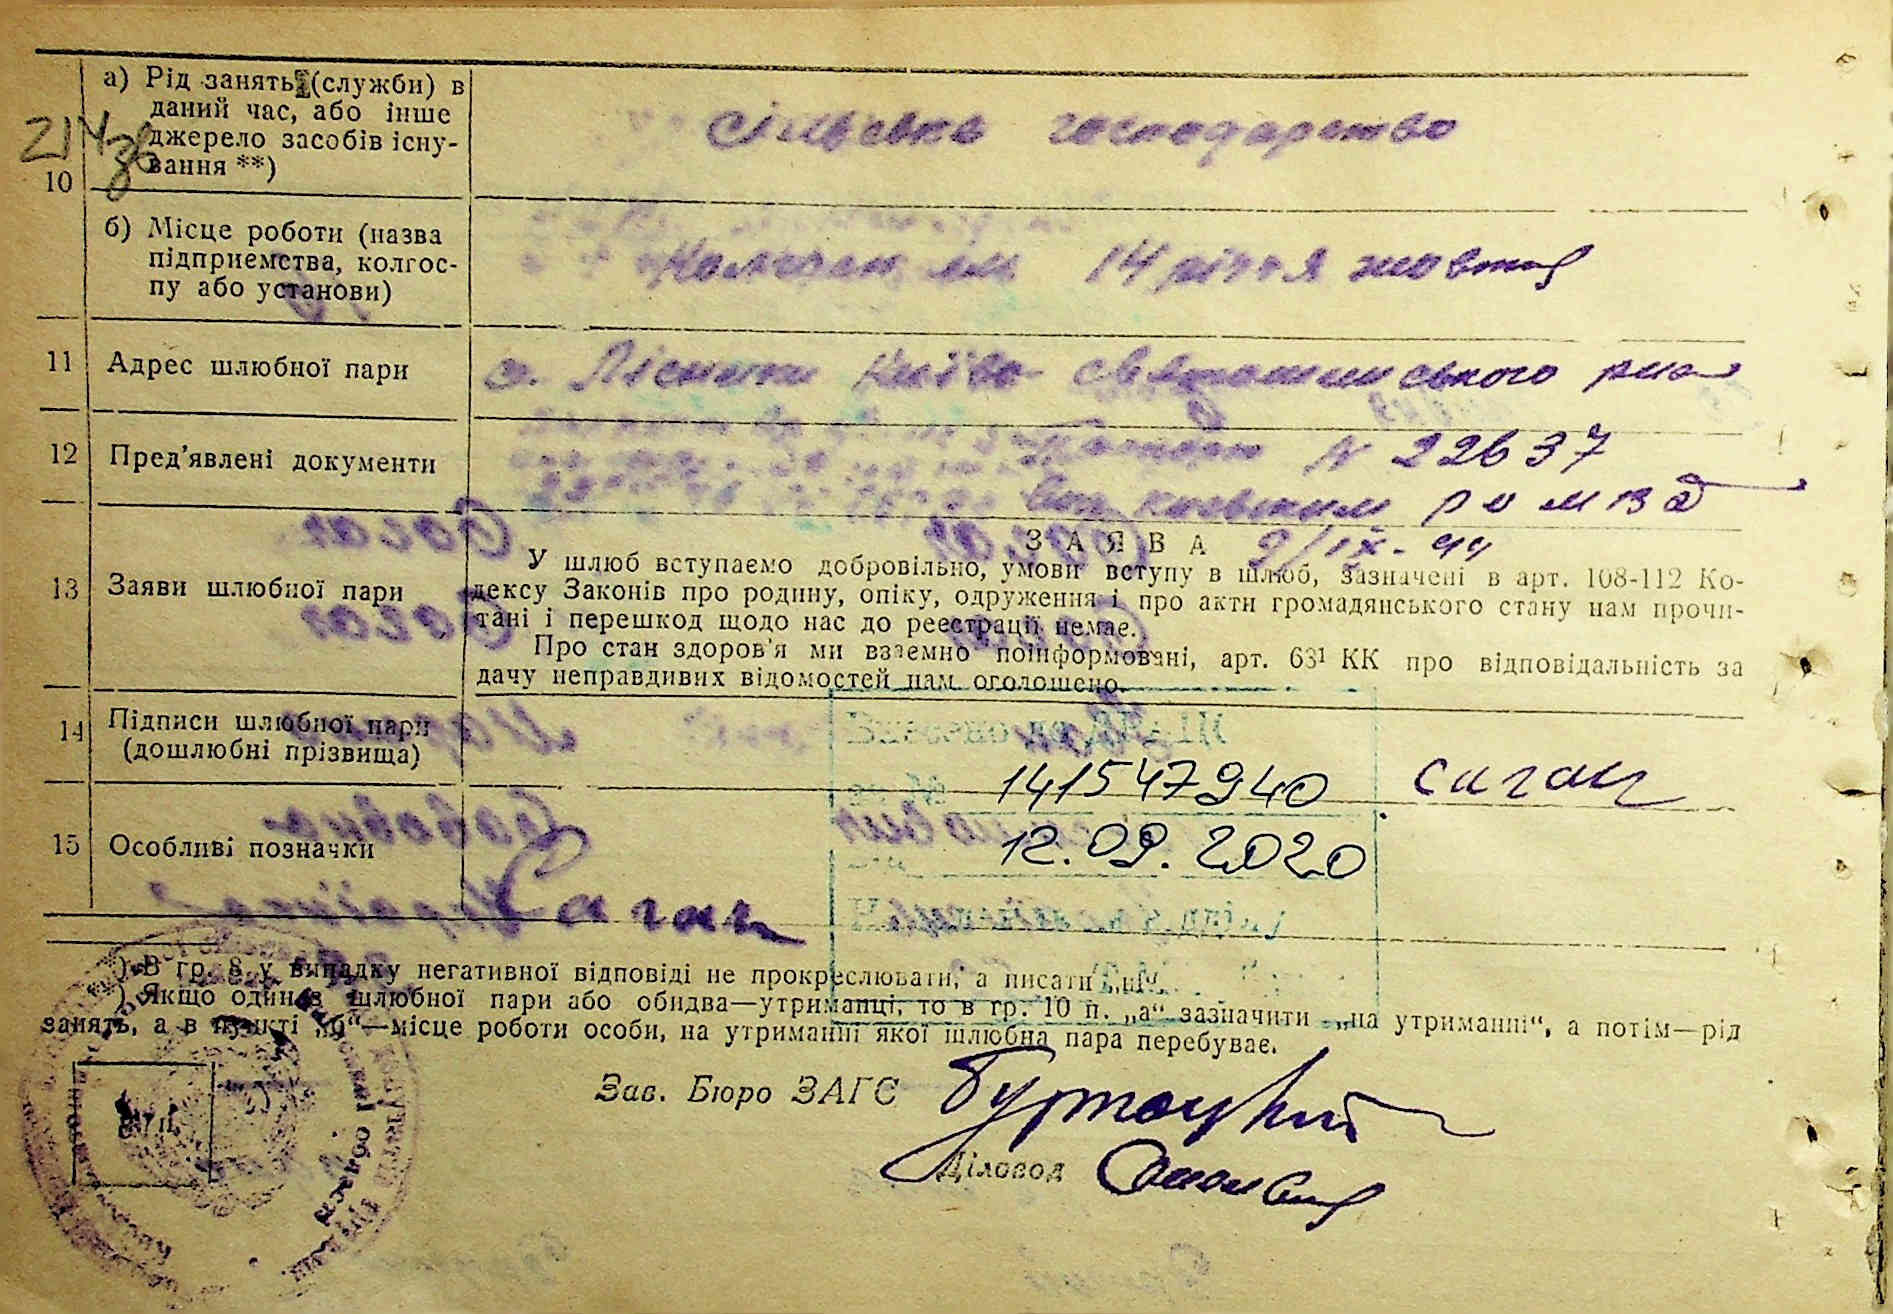 а) Рід занять (служби) в
даний час, або інше
джерело засобів існу-
вання **)
сільське господарство
214
10
б) Місце роботи (назва
підприємства, колгос-
пу або установи)
Колгосп ім 14 річчя жовтня
11 Адрес шлюбної пари
с. Київо святошинського р-на
12 Пред'явлені документи
Паспорт № 22637
13 Заяви шлюбної пари
ЗАЯВА
9/IX-44
У шлюб вступаємо добровільно, умови вступу в шлюб, зазначені в арт. 108-112 Ко-
дексу Законів про родину, опіку, одруження і про акти громадянського стану нам прочи-
тані і перешкод щодо нас до реєстрації немає.
Про стан здоров'я ми взаємно поінформовані, арт. 63¹ КК про відповідальність за
дачу неправдивих відомостей нам оголошено.
14 Підписи шлюбної пари
(дошлюбні прізвища)
141547940 Саган
15 Особливі позначки
12.09.2020
Саган
*) В гр. 8 у випадку негативної відповіді не прокреслювати, а писати „ні“.
*) Якщо один з шлюбної пари або обидва—утриманці, то в гр. 10 п. „а“ зазначити „на утриманні“, а потім—рід
занять, а в пункті „б“—місце роботи особи, на утриманні якої шлюбна пара перебуває.
Зав. Бюро ЗАГС
Діловод